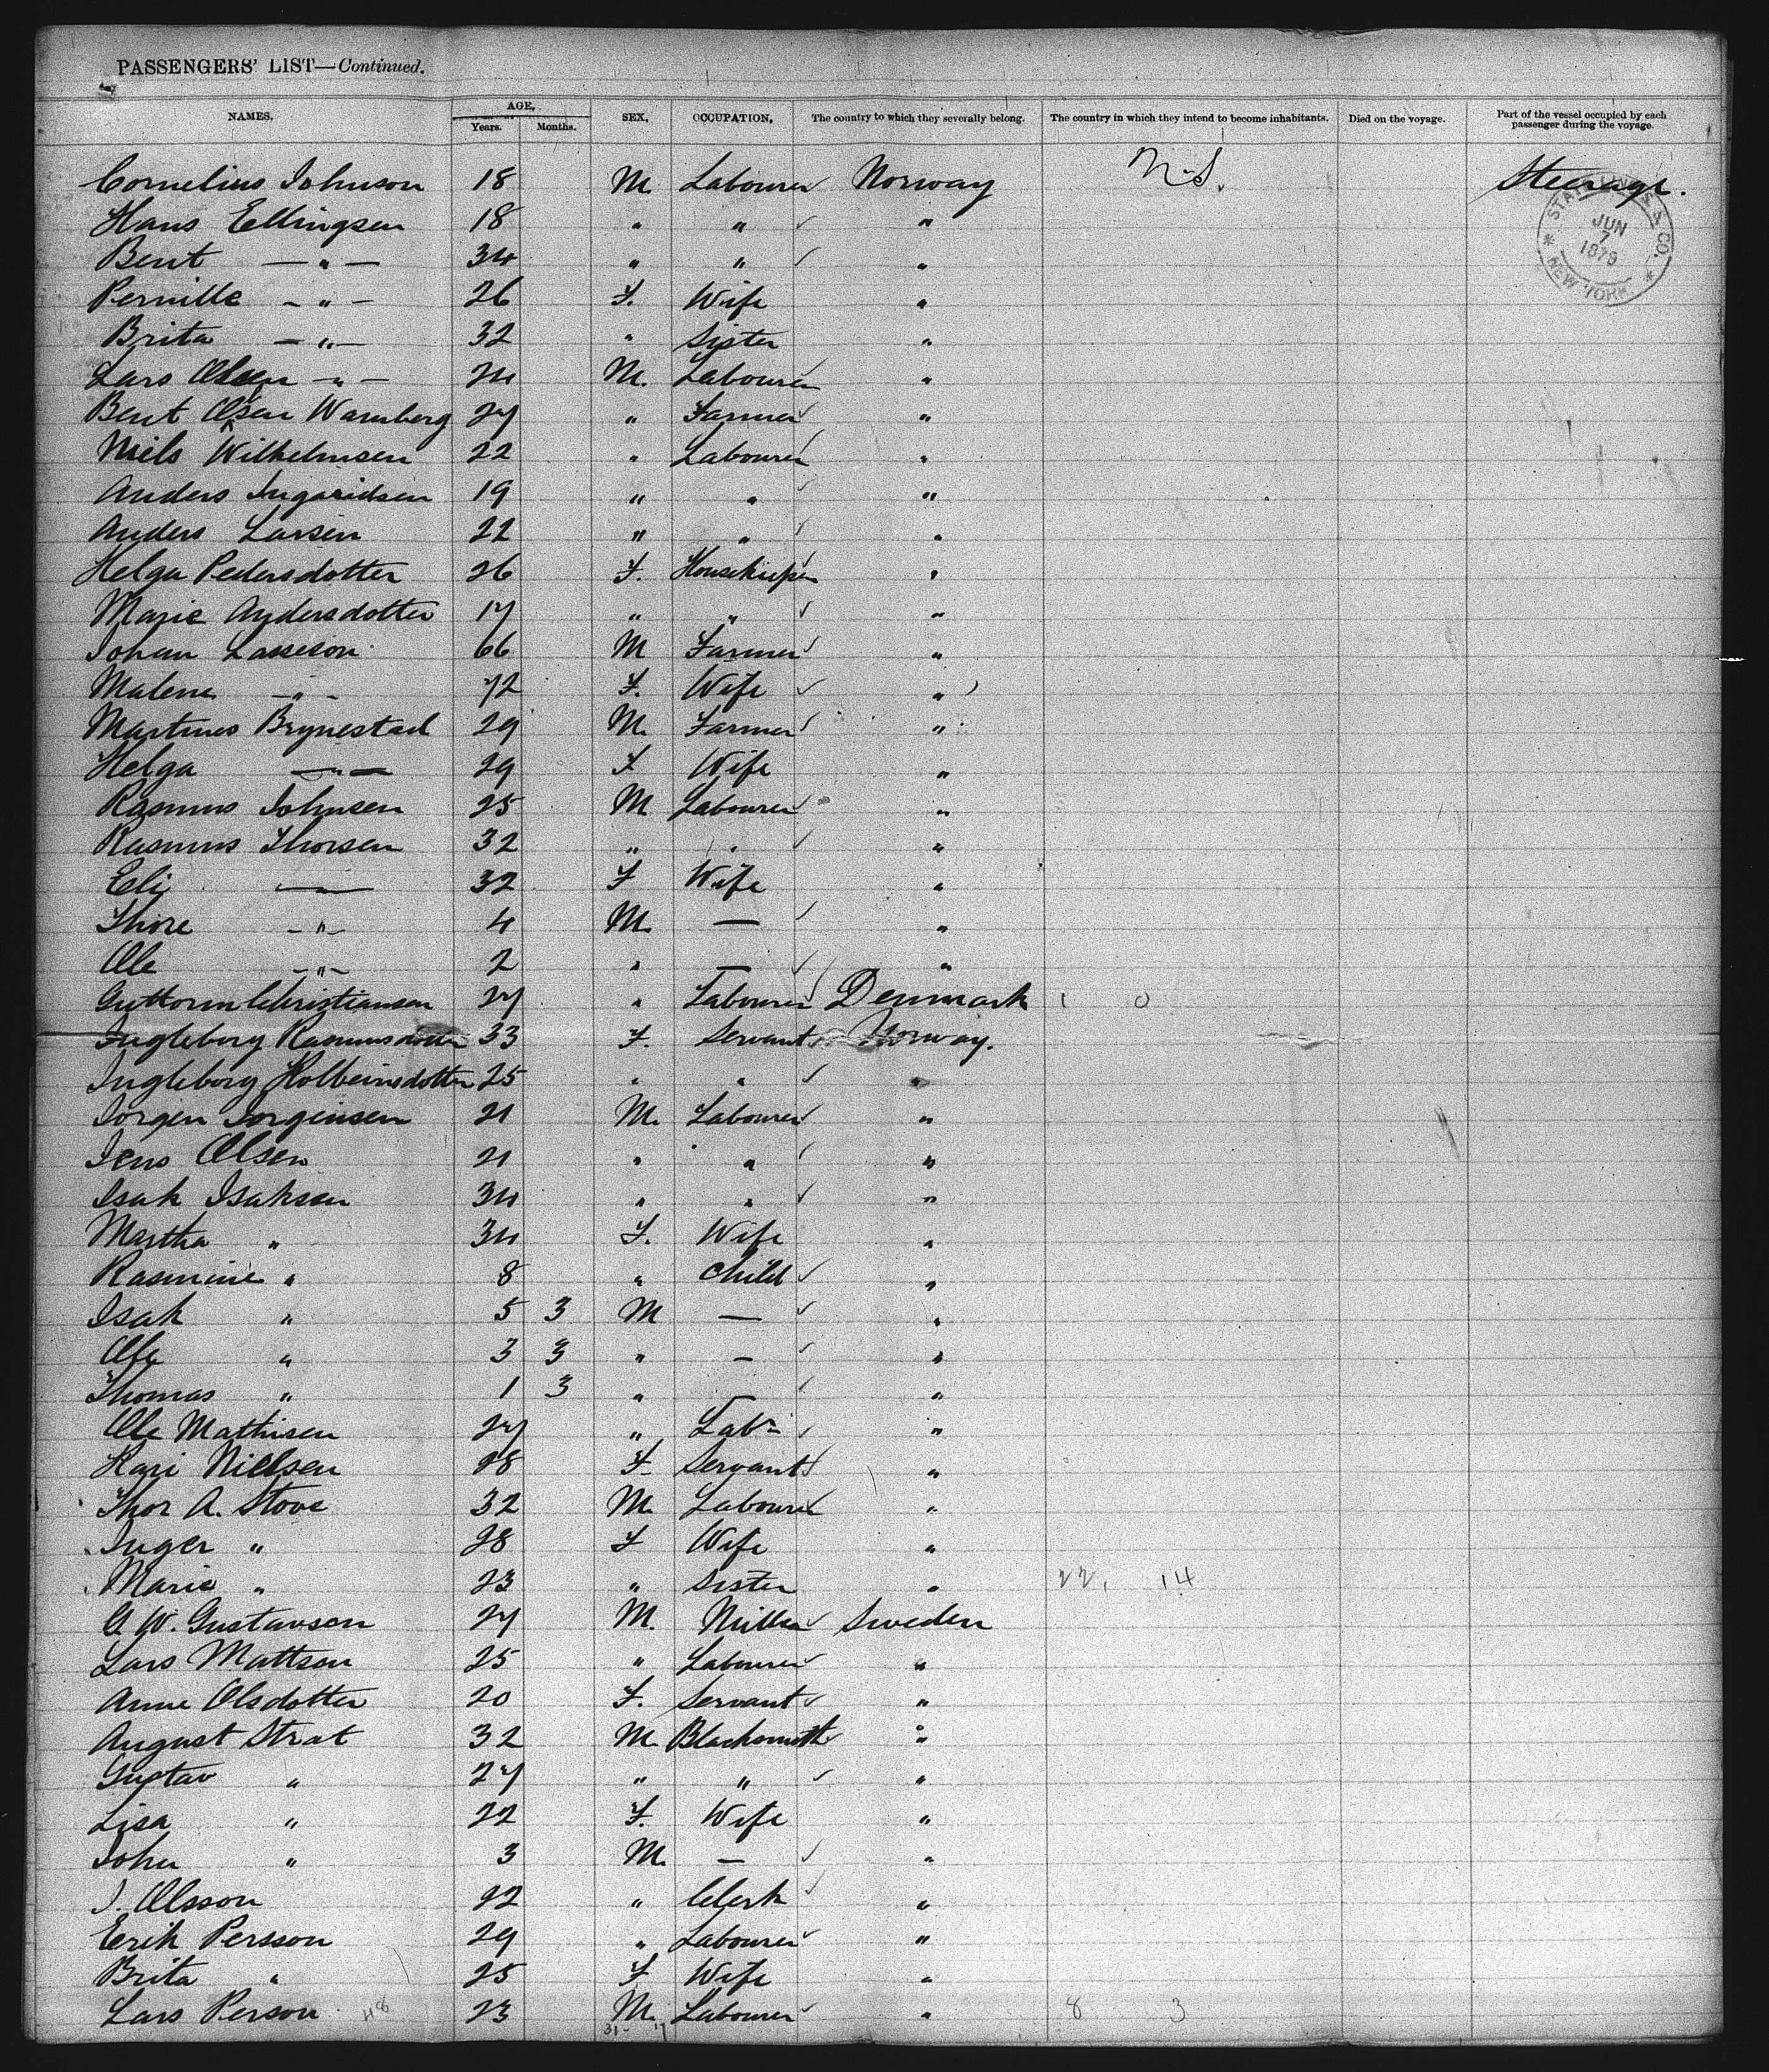 PASSENGERS' LIST—Continued.
NAMES. AGE, Years. Months. SEX, OCCUPATION, The country to which they severally belong. The country in which they intend to become inhabitants. Died on the voyage. Part of the vessel occupied by each passenger during the voyage.
Cornelius Johnson 18 M. Labourer Norway Steerage.
STATE LINE S.S. CO. JUN 7 1879 NEW YORK
Hans Ellingsen 18 " " "
Bent —"— 34 " " "
Pernille —"— 26 F. Wife "
Brita —"— 32 " Sister "
Lars Olsen —"— 24 M. Labourer "
Bent Olsen Warnberg 27 " Farmer "
Niels Wilhelmsen 22 " Labourer "
Anders Ingaridsen 19 " " "
Anders Larsen 22 " " "
Helga Pedersdotter 26 F. Housekeeper "
Marie Andersdotter 17 " " "
Johan Lasseson 66 M Farmer "
Malene —"— 72 F. Wife "
Martines Brynestad 29 M. Farmer "
Helga —"— 29 F Wife "
Rasmus Johnsen 25 M Labourer "
Rasmus Thorsen 32 " " "
Eli —"— 32 F Wife "
Thore —"— 4 M. — "
Ole —"— 2 " — "
Guttorm Christiansen 27 " Labourer Denmark 1 0
Ingleborg Rasmusdotter 33 F. Servant Norway.
Ingleborg Kolbeinsdotter 25 " " "
Jorgen Jorgensen 21 M. Labourer "
Jens Olsen 21 " " "
Isak Isaksen 34 " " "
Martha " 34 F. Wife "
Rasmine " 8 " Child "
Isak " 5 3 M — "
Ole " 3 3 " — "
Thomas " 1 3 " "
Ole Mathisen 27 " Lab- "
Kari Nielsen 18 F Servant "
Thor A. Stove 32 M. Labourer "
Inger " 28 F Wife "
Marie " 23 " Sister " 22, 14
G. W. Gustavson 27 M. Miller Sweden
Lars Mattson 25 " Labourer "
Anne Olsdotter 20 F. Servant "
August Strat 32 M. Blacksmith "
Gustav " 27 " " "
Lisa " 22 F. Wife "
John " 3 M. — "
J. Olsson 22 " Clerk "
Erik Persson 29 " Labourer "
Brita " 25 F Wife "
Lars Person 48 23 M. Labourer " 8 3
31- 17